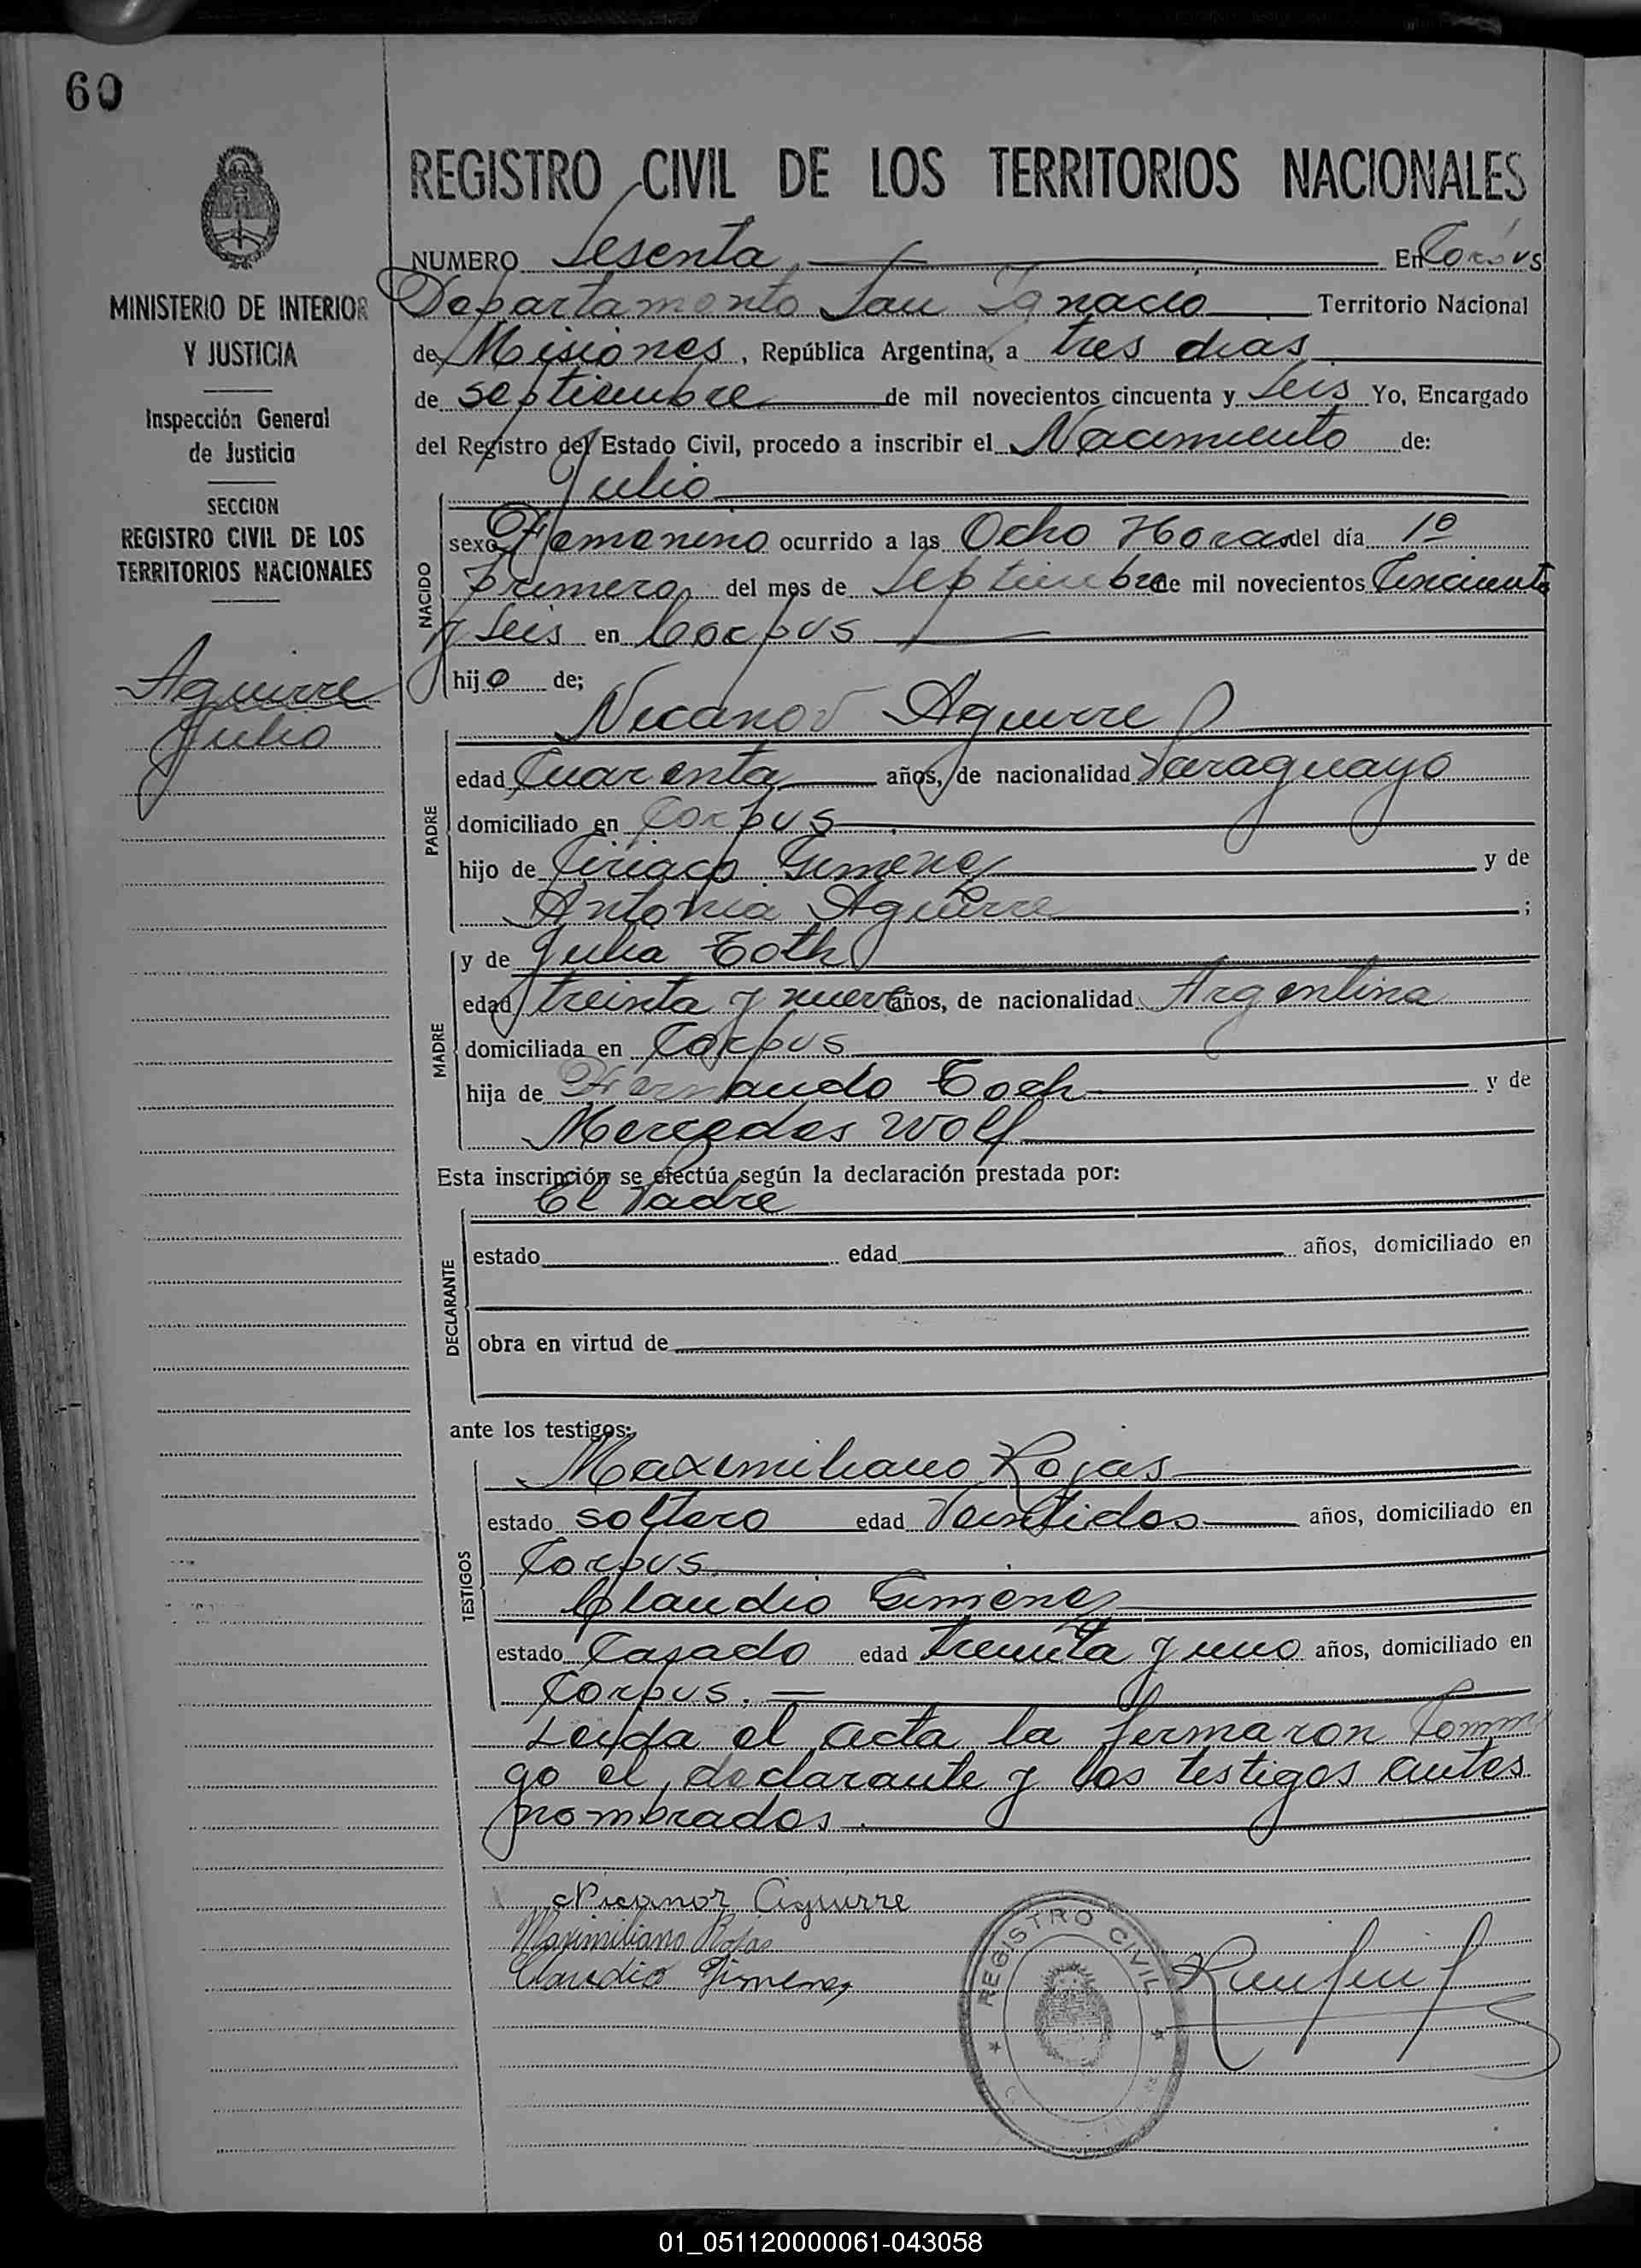 60
REGISTRO CIVIL DE LOS TERRITORIOS NACIONALES
NUMERO Sesenta En Corpus
Departamento San Ignacio Territorio Nacional
de Misiones, República Argentina, a tres dias
de septiembre de mil novecientos cincuenta y Seis Yo, Encargado
del Registro del Estado Civil, procedo a inscribir el Nacimiento de:
MINISTERIO DE INTERIOR
Y JUSTICIA
Inspección General
de Justicia
SECCION
REGISTRO CIVIL DE LOS
TERRITORIOS NACIONALES
Aguirre
Julio
NACIDO
Julio
sexo Femenino ocurrido a las Ocho Horas del día 1º
primero del mes de Septiembre de mil novecientos Cincuenta
y Seis en Corpus
hijo de;
PADRE
Nicanor Aguirre
edad Cuarenta años, de nacionalidad Paraguayo
domiciliado en Corpus
hijo de Ciriaco Gimenez y de
Antonia Aguirre ;
MADRE
y de Julia Toth
edad treinta y nueve años, de nacionalidad Argentina
domiciliada en Corpus
hija de Fernando Toch y de
Mercedes Wolf
Esta inscripción se efectúa según la declaración prestada por:
DECLARANTE
El Padre
estado edad años, domiciliado en
obra en virtud de
ante los testigos:
TESTIGOS
Maximiliano Rojas
estado soltero edad Veintidos años, domiciliado en
Corpus
Claudio Gimenez
estado Casado edad treinta y uno años, domiciliado en
Corpus.
Leida el acta la firmaron Conmi
go el declarante y los testigos antes
nombrados.
Nicanor Aguirre
Maximiliano Rojas
Claudio Jimenez
REGISTRO CIVIL
01_051120000061-043058